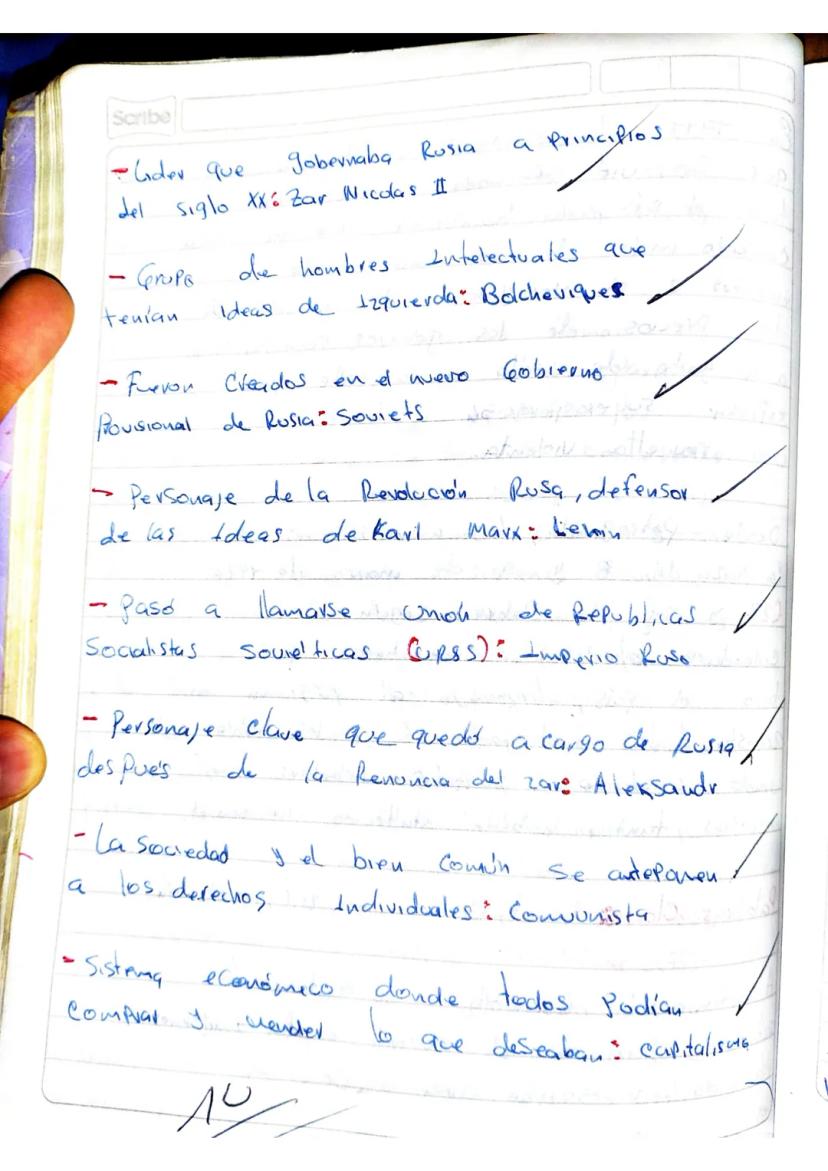 Scribe
- Lider que gobernaba Rusia a principios
del siglo XX: Zar Nicolas II
- Grupo de hombres Intelectuales que
tenían Ideas de Izquierda: Bolcheviques
- Fueron Creados en el nuevo Gobierno
Provisional de Rusia: Soviets
- Personaje de la Revolución Rusa, defensor
de las Ideas de Karl Marx: Lenin
- Pasó a llamarse Unión de Republicas
Socialistas Soviéticas (URSS): Imperio Ruso
- Personaje clave que quedó a cargo de Rusia
después de la Renuncia del zar: Aleksandr
- La Sociedad y el bien Común se anteponen
a los derechos Individuales: Comunista
- Sistema económico donde todos Podían
Comprar y vender lo que deseaban: Capitalismo
10